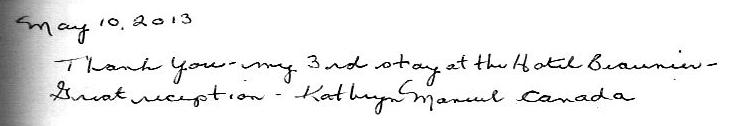 May 10, 2013
Thank You - my 3rd stay at the Hotel Beaunier -
Great reception - Kathryn Canada